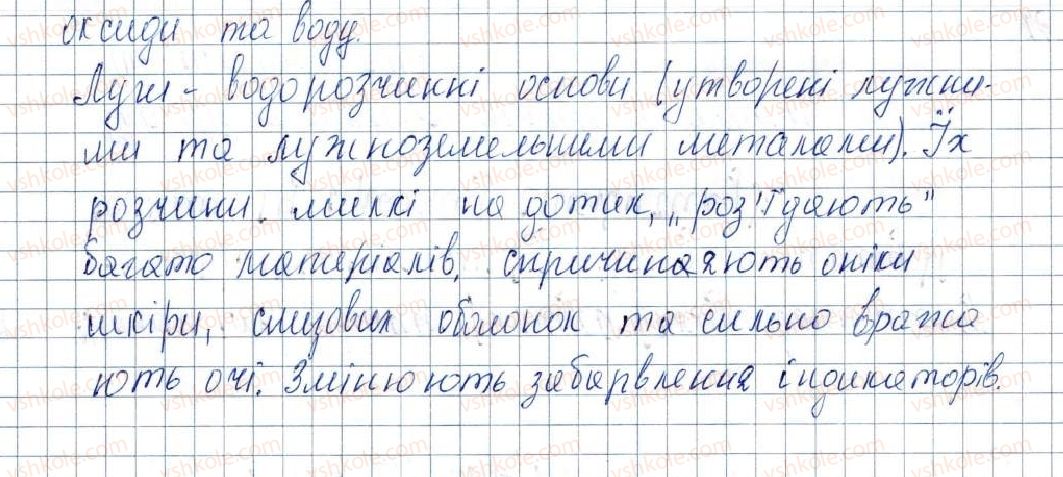 оксиди та воду.
Луги - водорозчинні основи (утворені лужни-
ми та лужноземельними металами). Їх
розчини милкі на дотик, „роз'їдають"
багато матеріалів, спричиняють опіки
шкіри, слизових оболонок та сильно вража
ють очі. Змінюють забарвлення індикаторів.